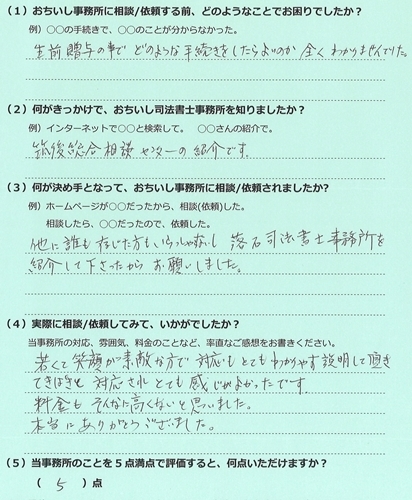 (1) おちいし事務所に相談/依頼する前、どのようなことでお困りでしたか？
例）○○の手続きで、○○のことが分からなかった。
生前贈与の事で どのような手続きをしたらよいのか 全くわかりませんでした。
(2) 何がきっかけで、おちいし司法書士事務所を知りましたか？
例）インターネットで○○と検索して。 ○○さんの紹介で。
筑後総合相談センターの紹介です。
(3) 何が決め手となって、おちいし事務所に相談/依頼されましたか？
例）ホームページが○○だったから、相談(依頼)した。
相談したら、○○だったので、依頼した。
他に誰も存じた方もいらっしゃらないし 落石司法書士事務所を
紹介して下さったから お願いしました。
(4) 実際に相談/依頼してみて、いかがでしたか？
当事務所の対応、雰囲気、料金のことなど、率直なご感想をお書きください。
若くて笑顔が素敵な方で 対応もとてもわかりやす説明して頂き
てきぱきと 対応され とても 感じがよかったです
料金も そんなに高くないと思いました。
本当に ありがとうございました。
(5) 当事務所のことを５点満点で評価すると、何点いただけますか？
（ 5 ）点